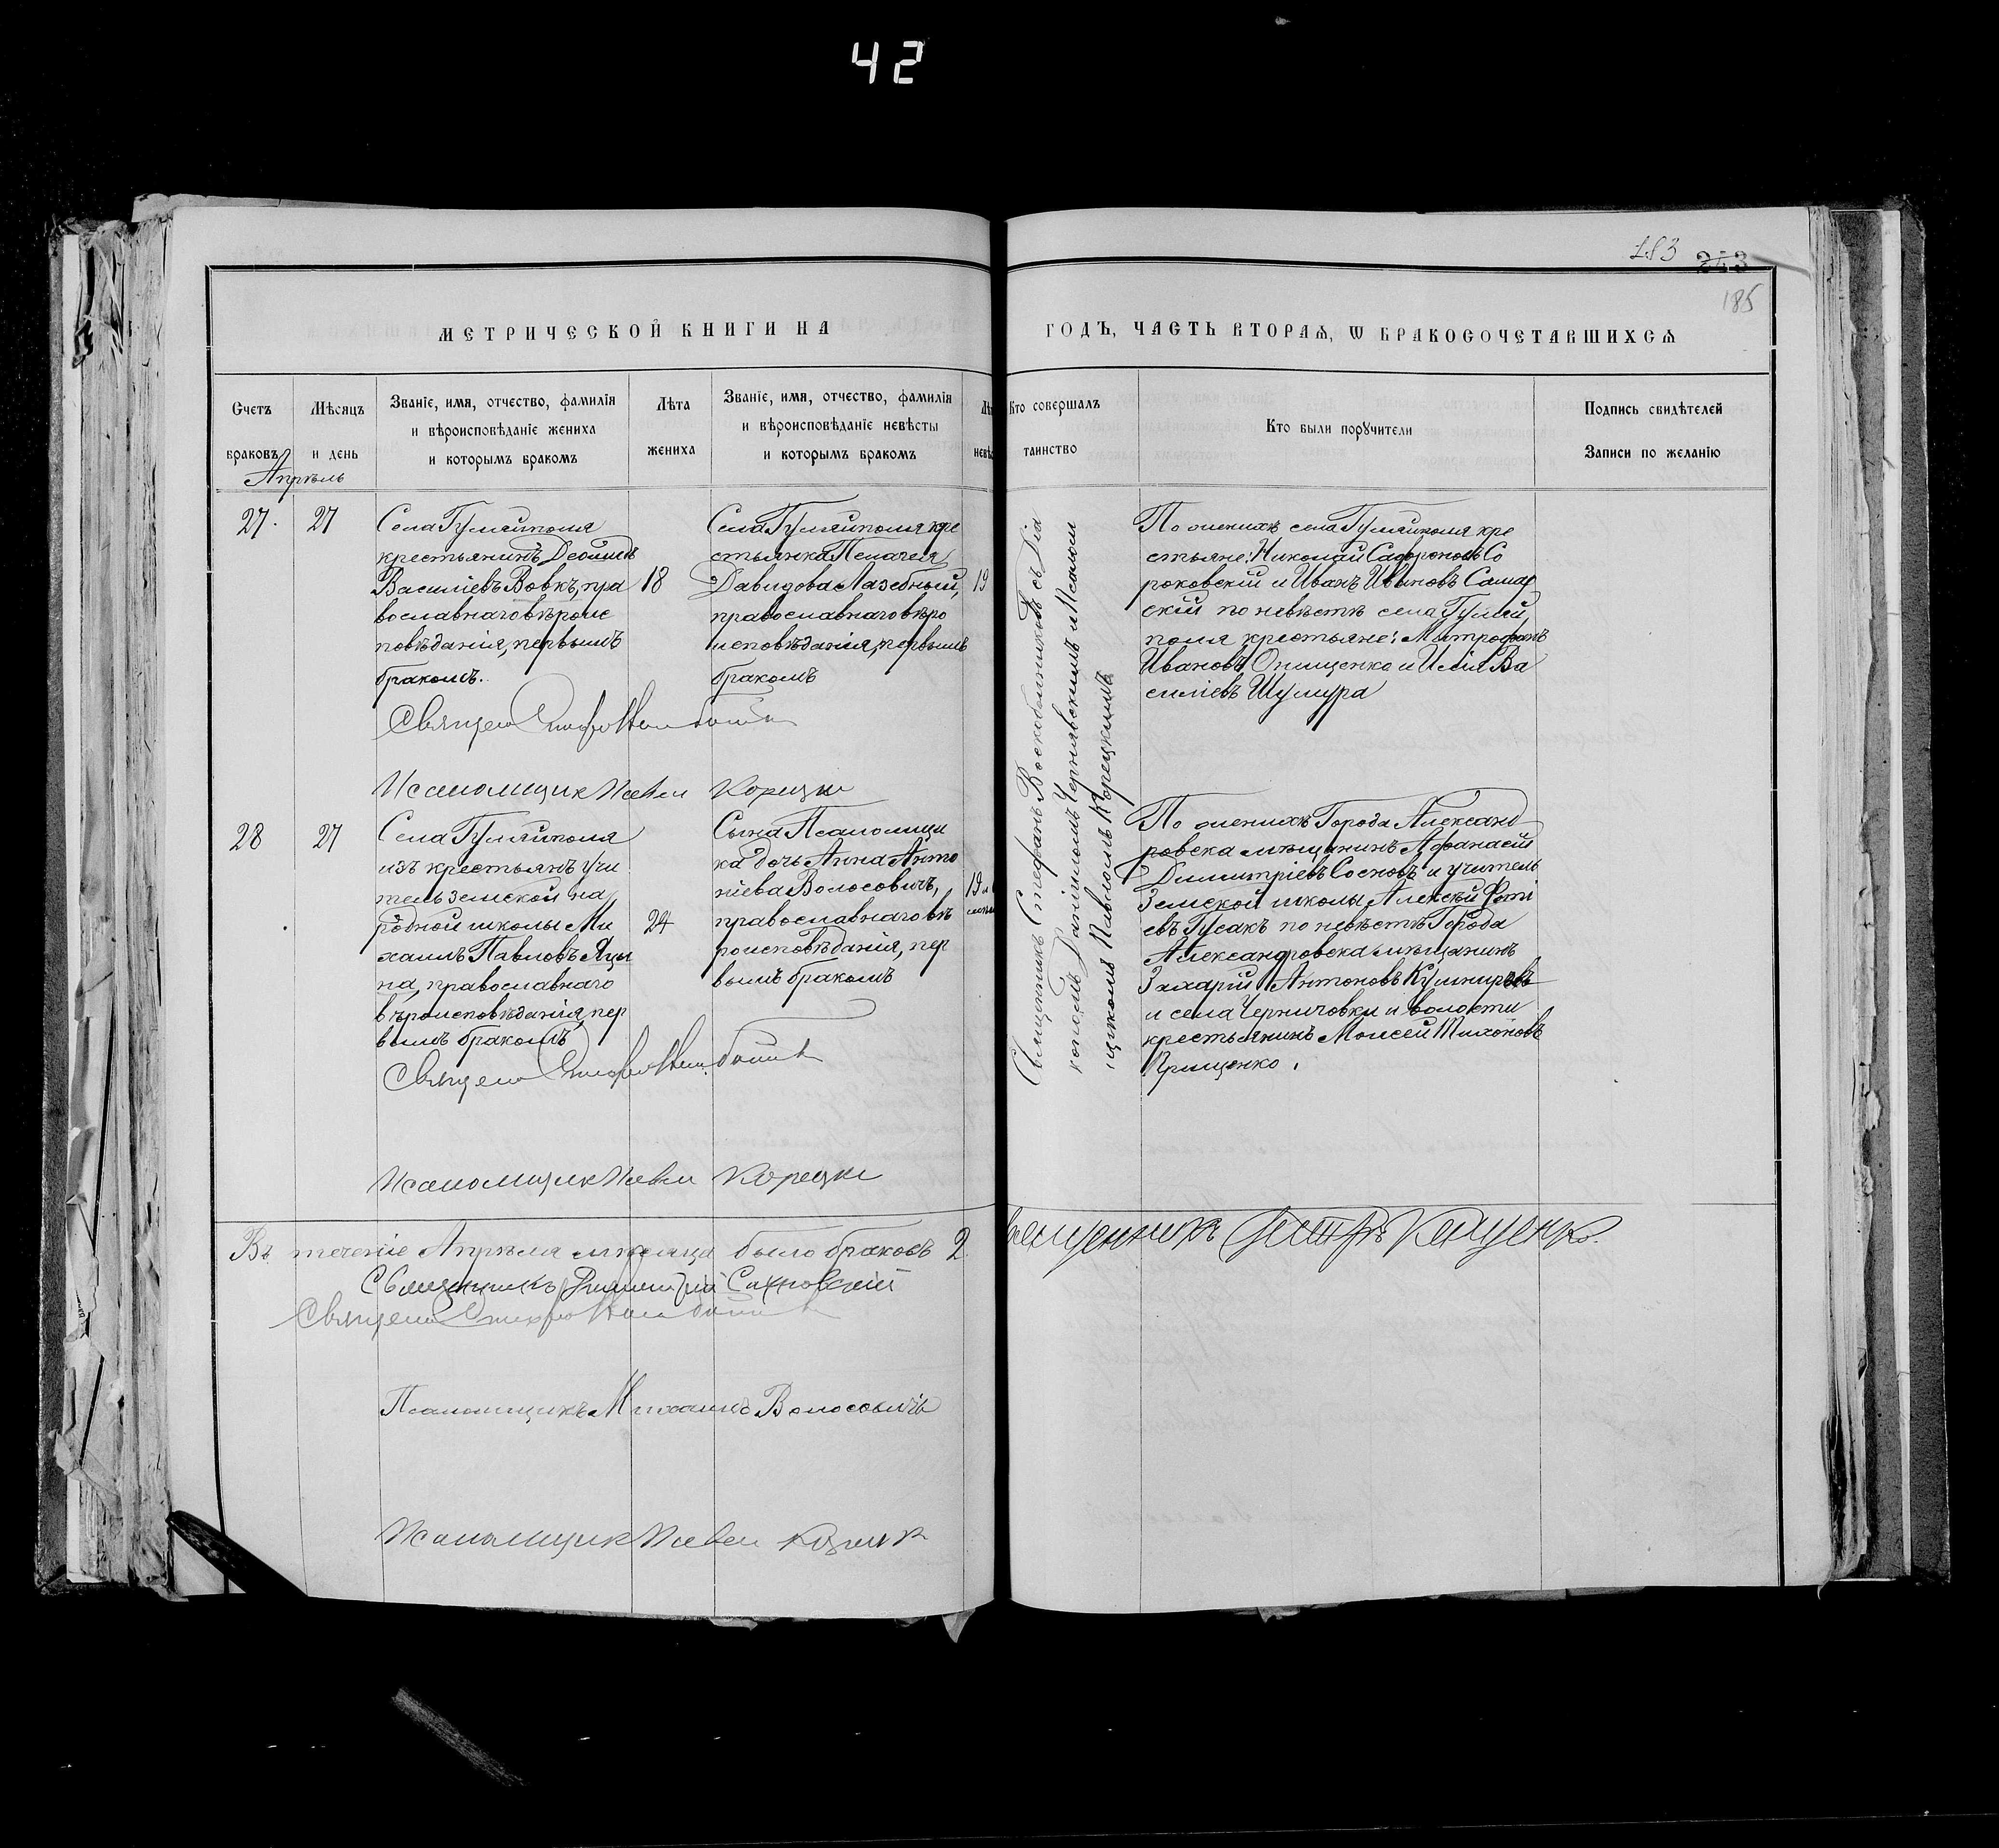 42
183 243
185
МЕТРИЧЕСКОЙ КНИГИ НА
ГОДЪ, ЧАСТЬ ВТОРАѦ, Ѡ БРАКОСОЧЕТАВШИХСѦ
Счетъ
браковъ
Мѣсяцъ
и день
Званіе, имя, отчество, фамилія
и вѣроисповѣданіе жениха
и которымъ бракомъ
Лѣта
жениха
Званіе, имя, отчество, фамилія
и вѣроисповѣданіе невѣсты
и которымъ бракомъ
Кто совершалъ
таинство
Кто были поручители
Подпись свидѣтелей
Записи по желанію
Апрѣль
27. 27
Села Гуляйполя
крестьянинъ
Василіевъ Вовкъ, пра
вославнаго вѣроис
повѣданія, первымъ
бракомъ.
18
Села Гуляйполя кре
стьянка Пелагея
Давидова Лазебный,
православнаго вѣро
исповѣданія, первымъ
бракомъ
19
Священникъ Стефанъ Воскобойниковъ съ Діа
кономъ Даніиломъ Чернявскимъ и Псалом
щикомъ Павломъ Корецкимъ
По женихѣ села Гуляйполя кре
стьяне: Николай Сафроновъ Со
роковскій и Иванъ Ивановъ Самар
скій по невѣстѣ села Гуляй
поля крестьяне: Митрофанъ
Ивановъ Онищенко и Илія Ва
силіевъ Шумура
Священ
Псаломщик Павел Корецки
28 27
Села Гуляйполя
изъ крестьянъ учи
тель земской на
родной школы Ми
хаилъ Павловъ Яцы
на, православнаго
вѣроисповѣданія, пер
вымъ бракомъ
24
Сына Псаломщи
ка дочь Анна Анто
ніева Волосовичъ,
православнаго вѣ
роисповѣданія, пер
вымъ бракомъ
19
По женихѣ Города Александ
ровска мѣщанинъ Афанасій
Димитріевъ Сосновъ и учитель
Земской школы Алексѣй Фоти
евъ Гусакъ по невѣстѣ Города
Александровска мѣщанинъ
Захарій Антоновъ Кушнировъ
и села Черниговки и волости
крестьянинъ Моисей Тихоновъ
Грищенко.
Священ
Псаломщик Павел Корецки
Въ теченіе Апрѣля мѣсяца было браковъ 2.
Священникъ Димитрій Сахновскій
Священ
Псаломщикъ Михаилъ Волосовичъ
Псаломщик Павел
священникъ Петръ